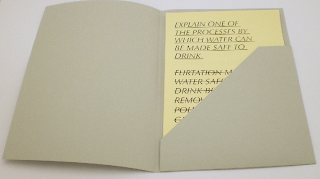 EXPLAIN ONE OF
THE PROCESSES BY
WHICH WATER CAN
BE MADE SAFE TO
DRINK.
FLIRTATION M
WATER SAFE
DRINK B
REMO
PO